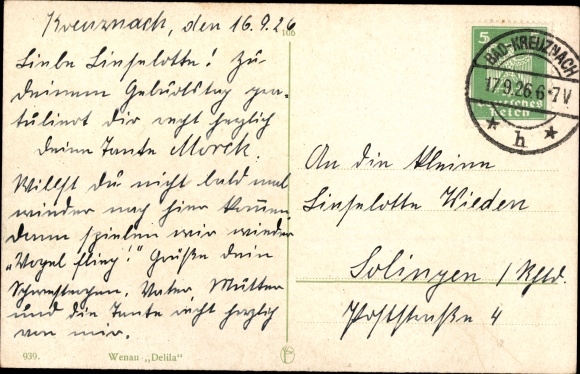 Kreuznach, den 16.9.26
106
Liebe Linselotte! Zu
deinem Geburtstag gra-
tuliert dir recht herzlich
deine Tante Morek.
Willst du nicht bald mal
wieder nach hier kommen
dann spielen wir wieder
„Vogel flieg!" Grüße dein
Schwesterchen, Vater, Mutter
und die Tante recht herzlich
von mir.
939. Wenau „Delila"
5
Deutsches
Reich
BAD-KREUZNACH
17.9.26.6-7V
* h *
An die kleine
Linselotte Wieden
Solingen / Rhld.
Poststraße 4